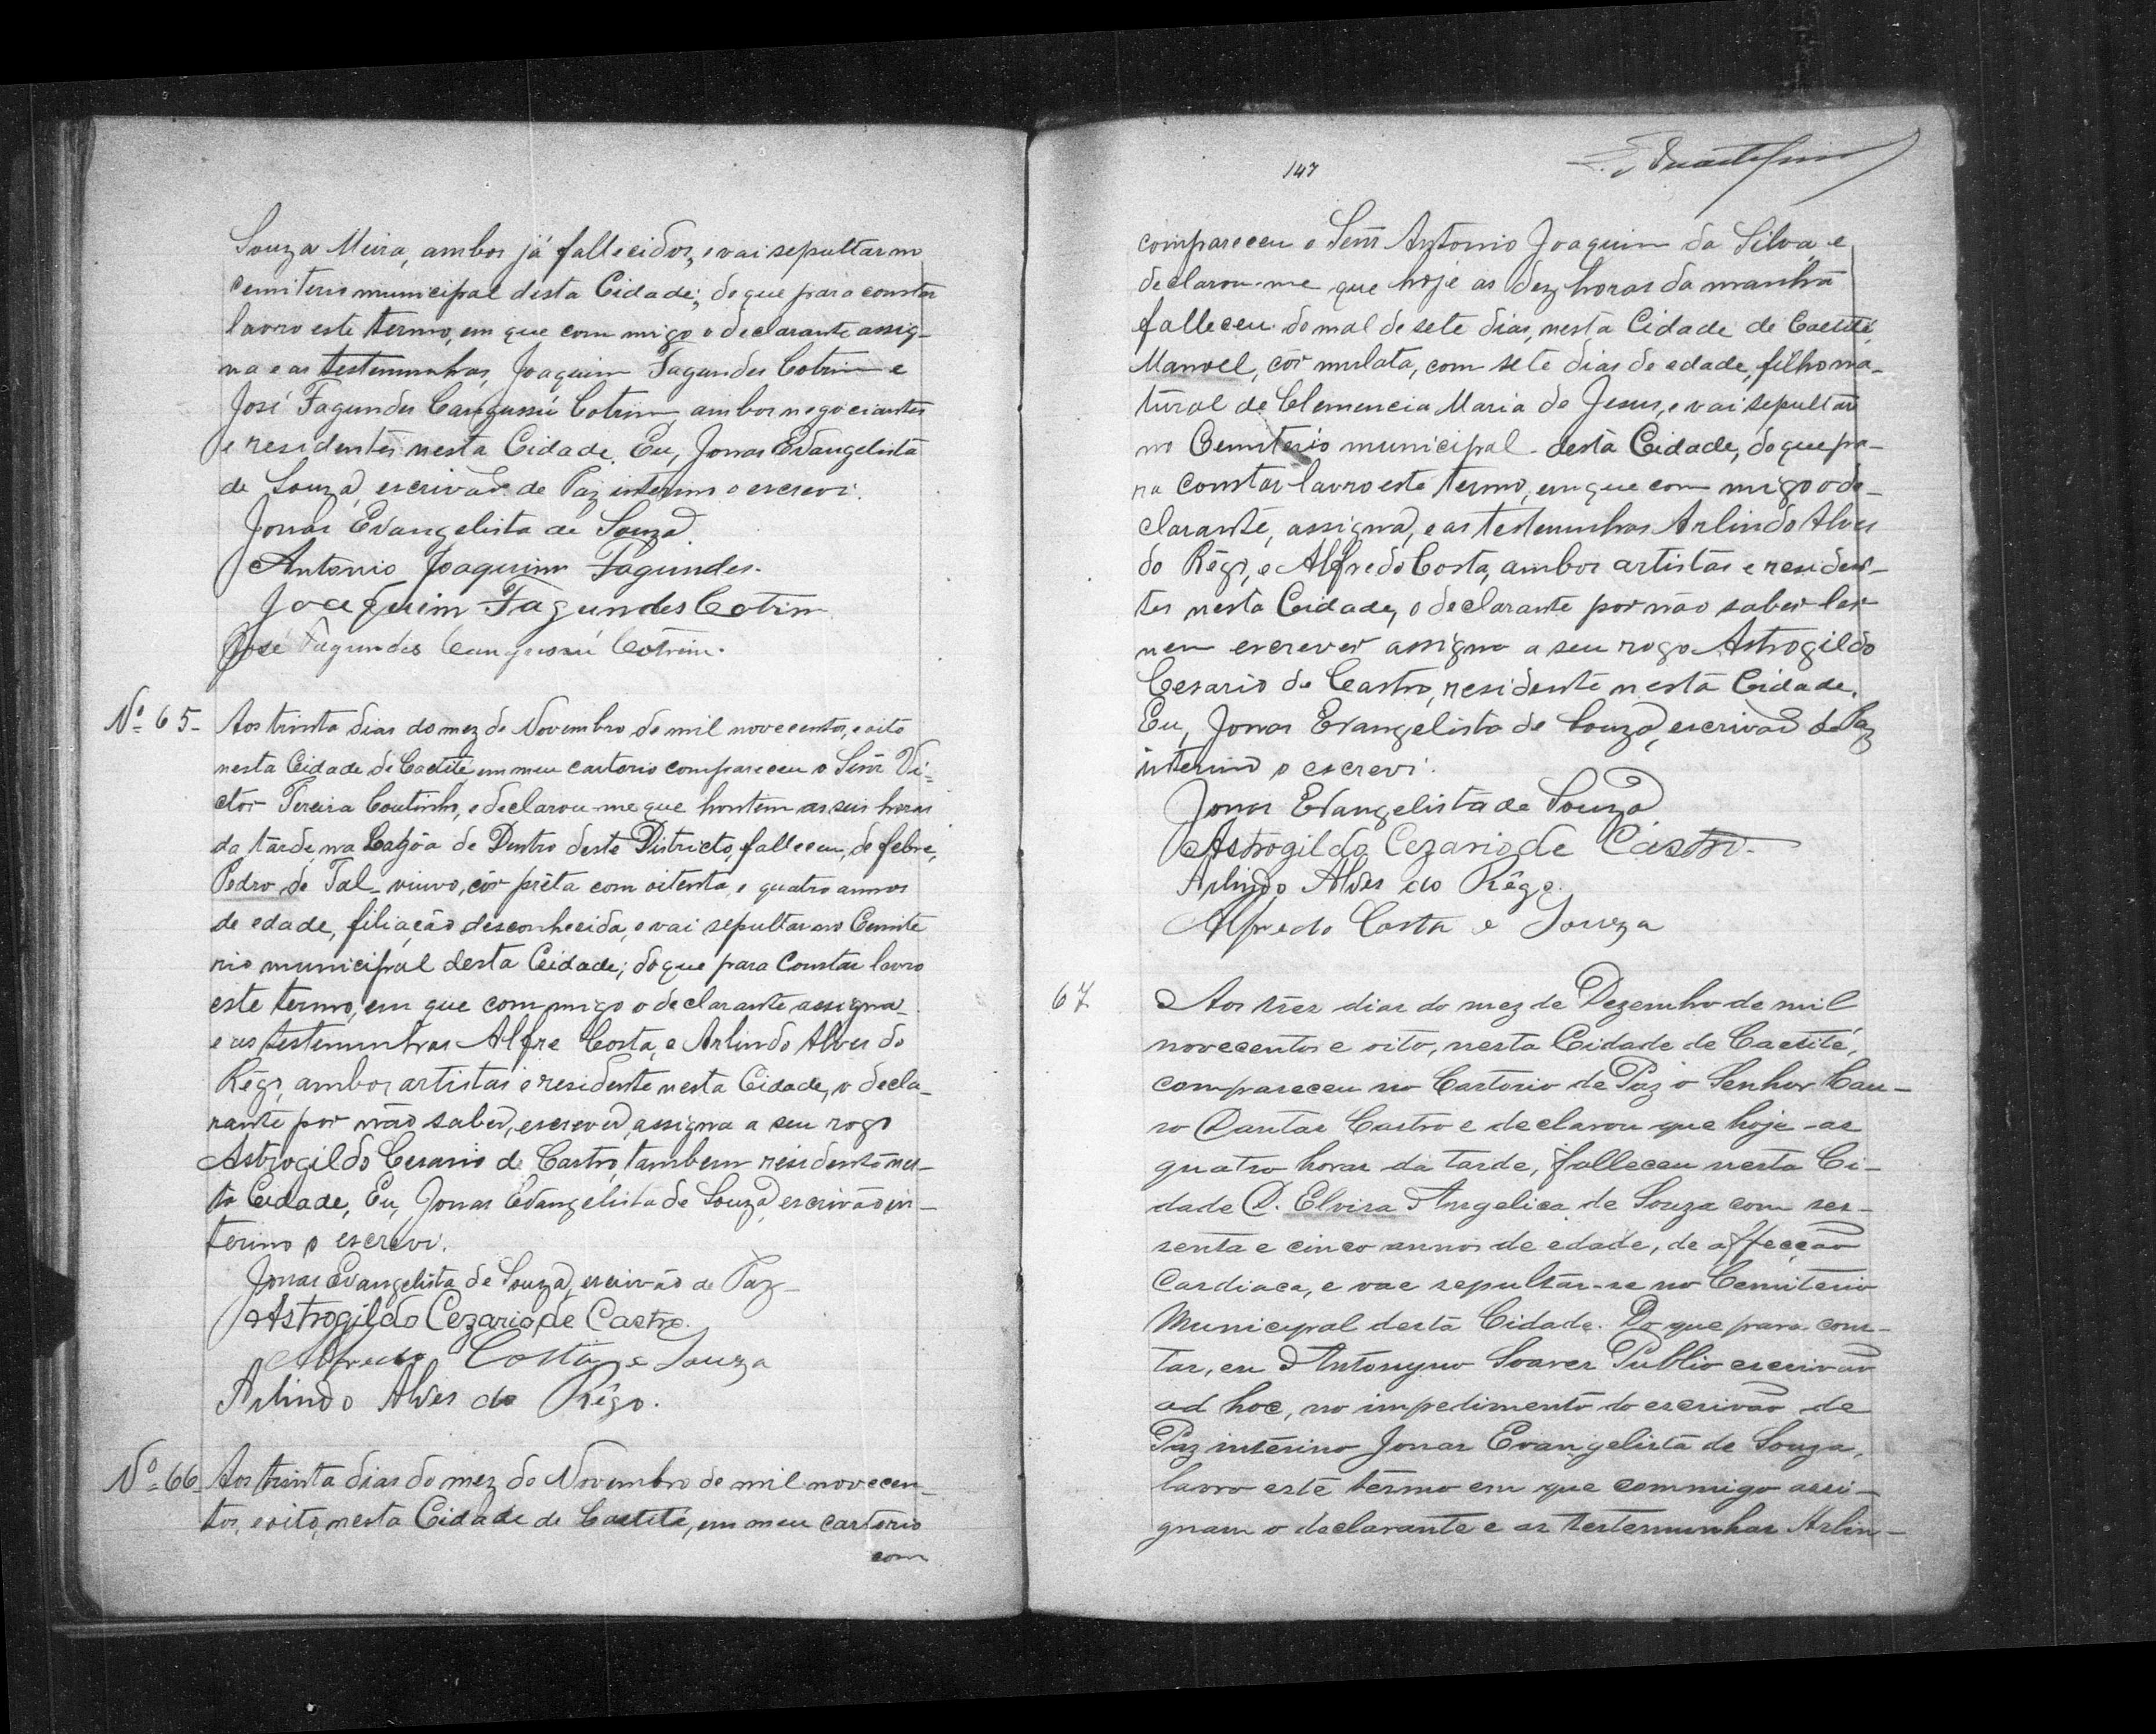 Souza Meira, ambos já fallecidos, e vai sepultar no
Cemiterio municipal desta Cidade; do que para constar
lavro este termo, em que com migo o declarante assig-
na e as testemunhas, Joaquim Fagundes Cotrim e
José Fagundes Cangussú Cotrim, ambos negociantes
e residentes nesta Cidade. Eu, Jonas Evangelista
de Souza, escrivão de Paz interino o escrevi.
Jonas Evangelista de Souza
Antonio Joaquim Fagundes.
Joaquim Fagundes Cotrim
José Fagundes Cangussú Cotrim.
Nº 65- Aos trinta dias do mez de Novembro de mil novecentos, e oito
nesta Cidade de Caetité, em meu cartorio compareceu o Senr Vi-
ctor Pereira Coutinho, e declarou-me que hontem as seis horas
da tarde, na Lagôa de Dentro deste Districto, falleceu, de febre,
Pedro de Tal - viuvo, côr prêta com oitenta, e quatro annos
de edade, filiação desconhecida, e vai sepultar no Cemite
rio municipal desta Cidade; do que para constar lavro
este termo, em que com migo o declarante assigna
e as testemunhas Alfre Costa, e Arlindo Alves do
Rêgo, ambos artistas e residente nesta Cidade, o decla-
rante por não saber, escrever, assigna a seu rogo
Astrogildo Cesario de Castro, tambem residente nes-
ta Cidade, Eu, Jonas Evangelista de Souza, escrivão in-
terino o escrevi.
Jonas Evangelista de Souza, escrivão de Paz-
Astrogildo Cezario de Castro.
Alfredo Costa e Souza
Arlindo Alves do Rêgo.
Nº 66- Aos trinta dias do mez de Novembro de mil novecen-
tos, e oito, nesta Cidade de Caetité, em meu cartorio
com
147
compareceu o Senr Antonio Joaquim da Silva, e
declarou-me que hoje as dez horas da manhã
falleceu do mal de sete dias, nesta Cidade de Caetité,
Manoel, côr mulata, com sete dias de edade, filho na-
tural de Clemencia Maria de Jesus, e vai sepultar
no Cemiterio municipal desta Cidade, do que pa-
ra constar lavro este termo, em que com migo o de-
clarante, assigna, e as testemunhas Arlindo Alves
do Rêgo, e Alfredo Costa, ambos artistas e residen-
tes nesta Cidade, o declarante por não saber ler
nem escrever assigna a seu rogo Astrogildo
Cesario de Castro, residente nesta Cidade.
Eu, Jonas Evangelista de Souza, escrivão de Paz
interino o escrevi.
Jonas Evangelista de Souza
Astrogildo Cezario de Castro-
Arlindo Alves do Rêgo.
Alfredo Costa e Souza
67 Aos três dias do mez de Dezembro de mil
novecentos e oito, nesta Cidade de Caetité,
compareceu no Cartorio de Paz o Senhor Lau-
ro Dantas Castro e declarou que hoje as
quatro horas da tarde, falleceu nesta Ci-
dade D. Elvira Angelica de Souza com ses-
senta e cinco annos de edade, de affecção
Cardiaca, e vae sepultar-se no Cemiterio
Municipal desta Cidade. Do que para cons-
tar, eu Antonyno Soares Publio escrivão
ad hoc, no impedimento do escrivão de
Paz interino Jonas Evangelista de Souza,
lavro este têrmo em que commigo assi-
gnam o declarante e as testemunhas Arlin-